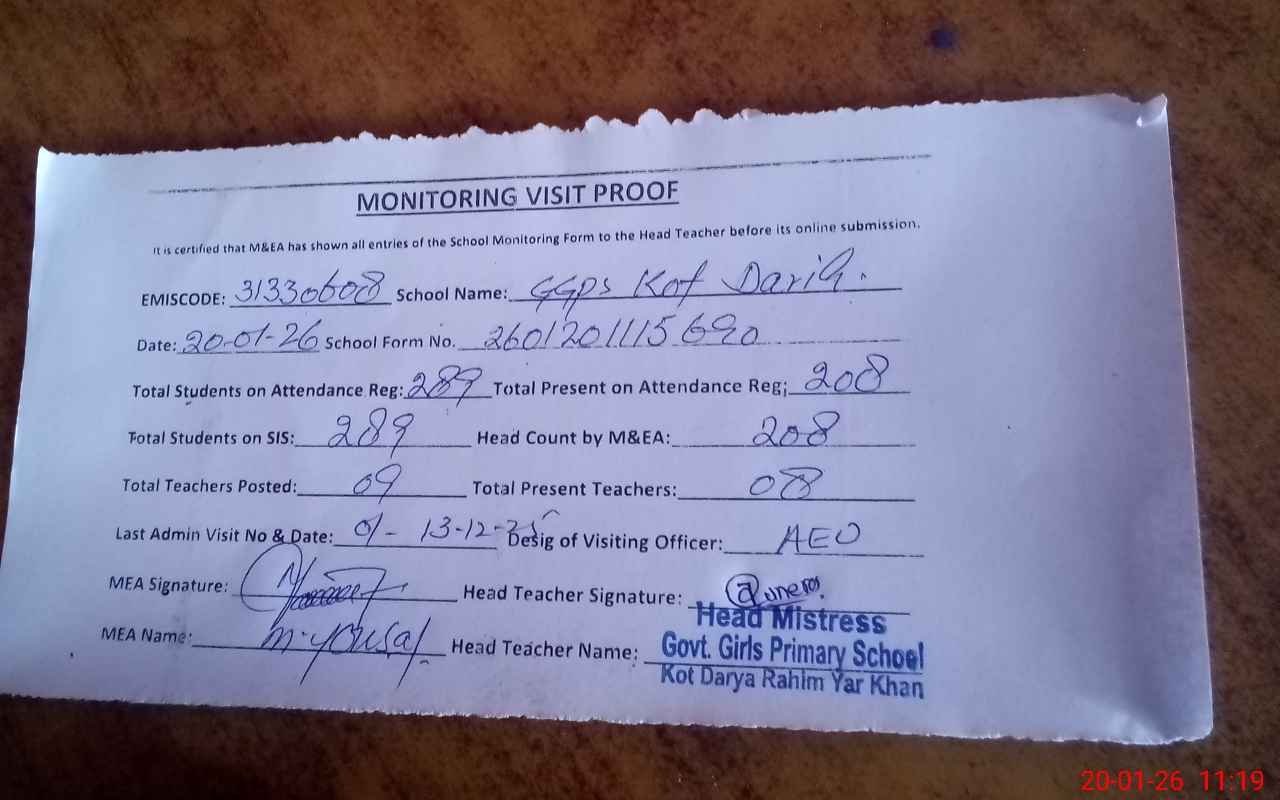 MONITORING VISIT PROOF
It is certified that M&EA has shown all entries of the School Monitoring Form to the Head Teacher before its online submission.
EMISCODE: 31330608 School Name: GGPS Kot Daria.
Date: 20-01-26 School Form No. 2601201115690
Total Students on Attendance Reg: 289 Total Present on Attendance Reg; 208
Total Students on SIS: 289 Head Count by M&EA: 208
Total Teachers Posted: 09 Total Present Teachers: 08
Last Admin Visit No & Date: 01- 13-12-25 Desig of Visiting Officer: AEO
MEA Signature: Head Teacher Signature:
MEA Name: M. Yousaf Head Teacher Name:
Head Mistress
Govt. Girls Primary School
Kot Darya Rahim Yar Khan
20-01-26 11:19